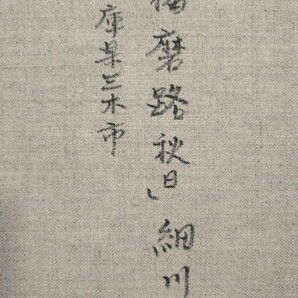 播磨路秋日」細川
庫県三木市